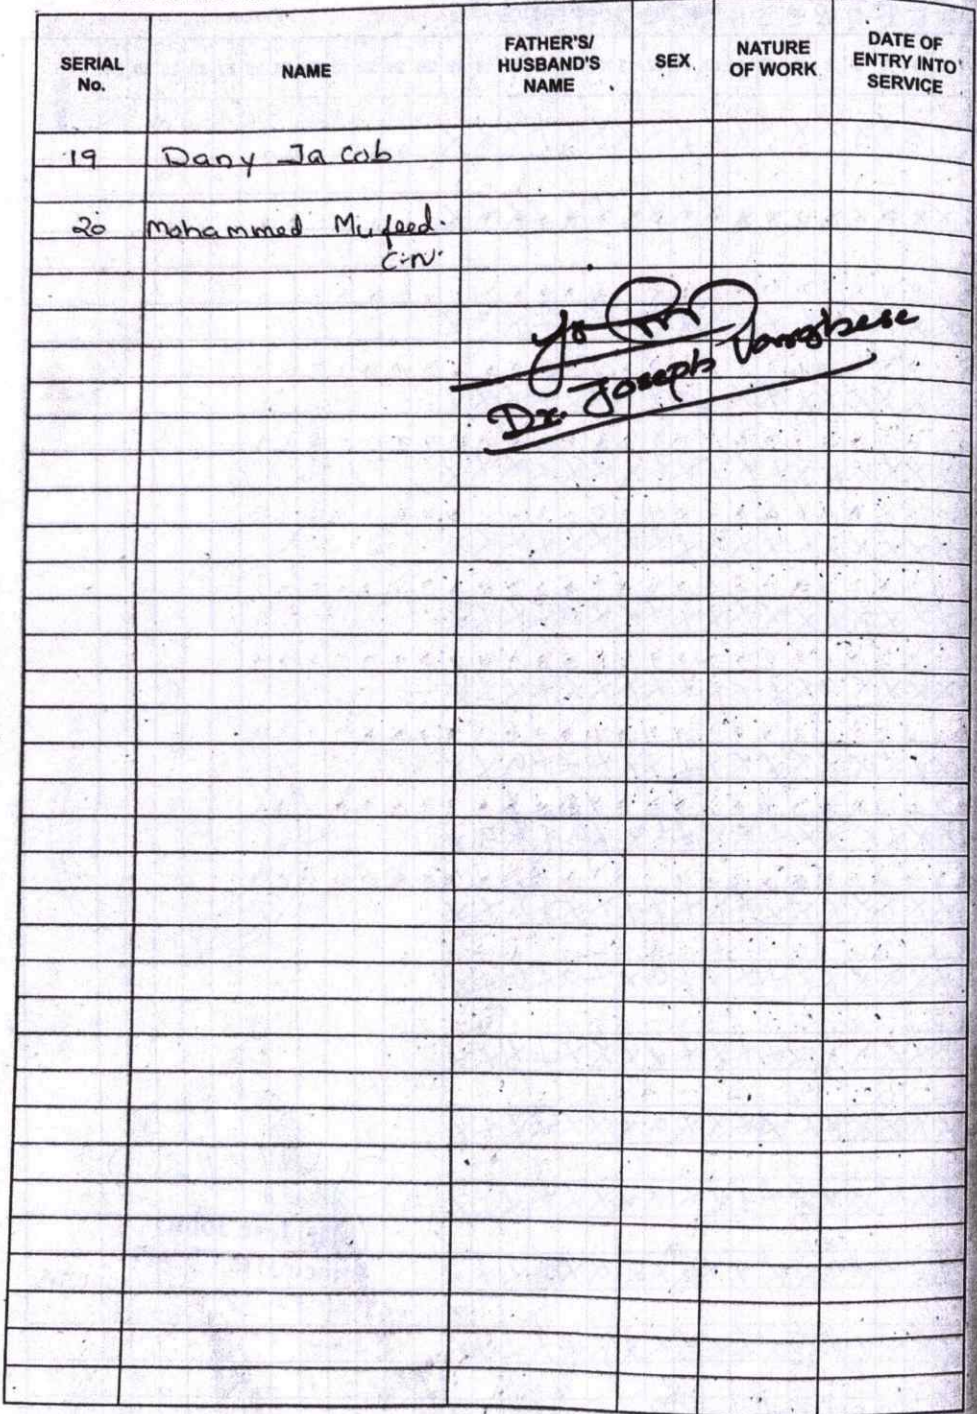 SERIAL No. NAME FATHER'S/ HUSBAND'S NAME SEX NATURE OF WORK DATE OF ENTRY INTO SERVICE
19 Dany Jacob
20 Mohammed Mufeed.
C.N.
Dr. Joseph Varghese